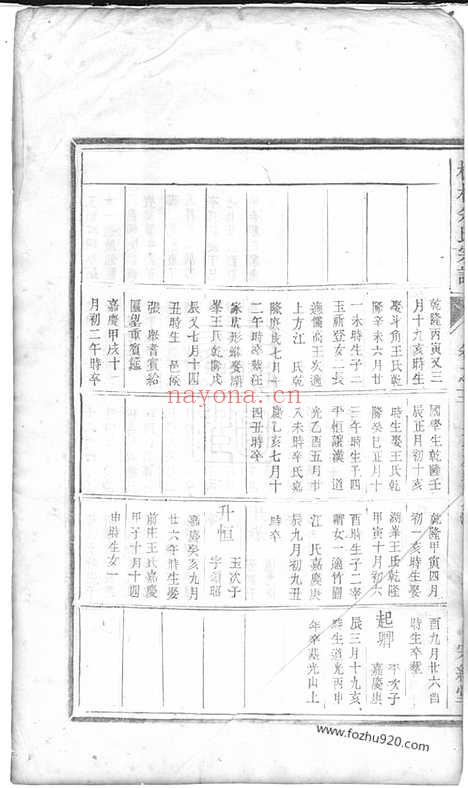 乾隆丙寅又三
月十九亥時生
娶斗角王氏乾
隆辛未六月廿
一未時生子二
玉新登女一長
適儒高王次適
上方江 氏乾
隆庚戌七月十
二午時卒
峯王氏乾隆戊
辰又七月十四
丑時生 邑侯
張 舉耆賓給
匾
嘉慶甲戌十二
月初二午時卒
國學生乾隆壬
辰正月初十亥
時生娶王氏乾
隆癸巳正月十
三午時生子四
平恒 漢 道
光乙酉五月廿
八未時卒氏嘉
慶乙亥七月十
四丑時卒
乾隆甲寅四月
初一亥時生娶
湖峯王氏乾隆
甲寅十月初六
酉時生子二宰
霨女一適竹園
江 氏嘉慶庚
辰九月初九丑
時卒
升恒 玉次子
字須昭
嘉慶癸亥九月
廿六午時生娶
前庄王氏嘉慶
甲子十月十四
申時生女一
酉九月廿六酉
時生卒塟
起 平次子
嘉慶庚
辰三月十九亥
時生道光丙申
年卒塟光山上
nayona.cn
www.fozhu920.com